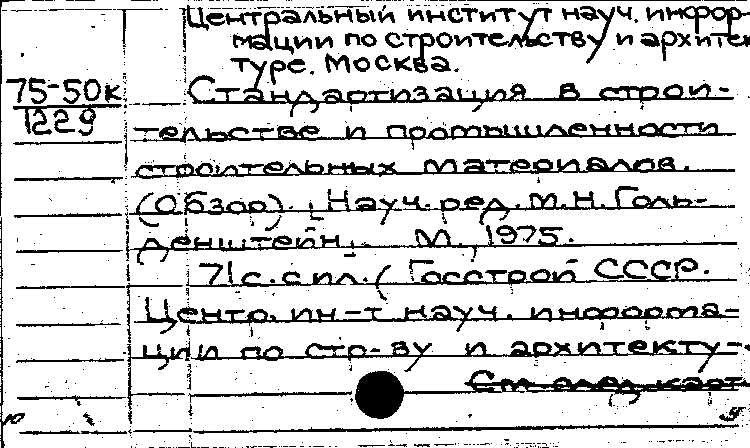 Центральный институт науч. инфор-
мации по строительству и архитек
туре. Москва.
75-50к
1229
Стандартизация в строи-
тельстве и промышленности
строительных материалов.
(Обзор). [Науч. ред. М.Н. Голь-
денштейн]. М., 1975.
71 с. с ил. (Госстрой СССР.
Центр. ин-т науч. информа-
ции по стр-ву и архитекту-
См. след. карт